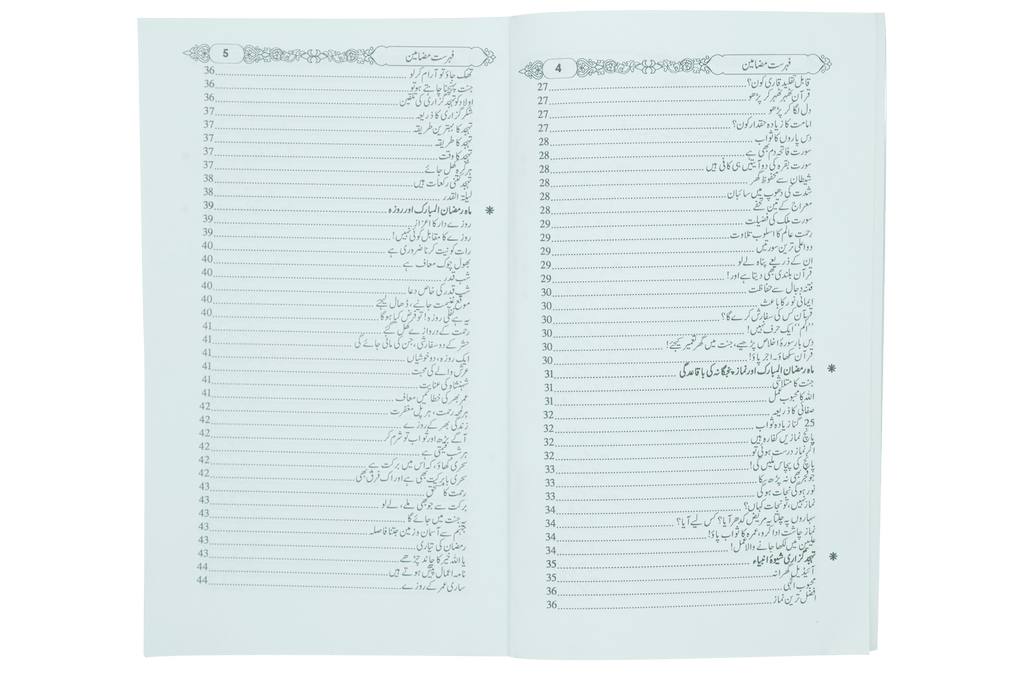 فہرست مضامین 4
قابل تقلید قاری کون؟ 27
قرآن ٹھہر ٹھہر کر پڑھو 27
دل لگا کر پڑھو 27
امامت کا زیادہ حقدار کون؟ 27
دس پاروں کا ثواب 28
سورت فاتحہ دم بھی ہے 28
سورت بقرہ کی دو آیتیں ہی کافی ہیں 28
شیطان سے محفوظ گھر 28
شدت کی دھوپ میں سائبان 28
معراج کے تین تحفے 28
سورت ملک کی فضیلت 29
رحمت عالم کا اسلوب تلاوت 29
دو اعلیٰ ترین سورتیں 29
ان کے ذریعے پناہ لے لو 29
قرآن بلندی بھی دیتا ہے اور! 29
فتنہ دجال سے حفاظت 30
ایمانی نور کا باعث 30
قرآن کس کی سفارش کرے گا؟ 30
’’الم‘‘ ایک حرف نہیں! 30
دس بار سورۂ اخلاص پڑھیے، جنت میں گھر تعمیر کیجئے! 30
قرآن سکھاؤ۔ اجر پاؤ! 30
* ماہ رمضان المبارک اور نماز پنجگانہ کی باقاعدگی 31
جنت کا متلاشی 31
اللہ کا محبوب عمل 31
صفائی کا ذریعہ 32
25 گنا زیادہ ثواب 32
پانچ نمازیں کفارہ ہیں 32
اگر نماز درست ہوئی تو 32
پانچ کی پچاس ملیں گی! 33
جو فجر بھی نہ پڑھ سکا 33
نور ہوگی نجات ہوگی 33
نماز نہیں، تو نجات کہاں؟ 34
سہاروں پہ چلتا یہ مریض کدھر آیا؟ کس لیے آیا؟ 34
نماز چاشت ادا کرو، عمرہ کا ثواب پاؤ! 34
علیین میں لکھا جانے والا عمل! 34
* تہجد گزاری شیوۂ انبیاء 35
آئیڈیل گھرانہ 35
محبوب الٰہی 36
افضل ترین نماز 36
فہرست مضامین 5
تھک جاؤ تو آرام کر لو 36
جنت پہنچنا چاہتے ہو تو 36
اولاد کو تہجد گزاری کی تلقین 36
شکر گزاری کا ذریعہ 37
تہجد کا بہترین طریقہ 37
تہجد کا طریقہ 37
تہجد کا وقت 37
ہر گرہ کھل جائے 37
تہجد کتنی رکعات ہیں 38
لیلۃ القدر 38
* ماہ رمضان المبارک اور روزہ 39
روزے دار کا اعزاز 39
روزے کا مقابل کوئی نہیں! 39
رات کو نیت کرنا ضروری ہے 40
بھول چوک معاف ہے 40
شب قدر 40
شب قدر کی خاص دعا 40
موقع غنیمت جانے، ڈھال لیجئے 40
یہ ہے نفلی روزہ! تو فرض کیا ہوگا 40
رحمت کے دروازے کھل گئے 41
حشر کے دو سفارشی، جن کی مانی جائے گی 41
ایک روزہ، دو خوشیاں 41
عرش والے کی محبت 41
شہنشاہ کی عنایت 41
عمر بھر کی خطائیں معاف 41
ہر لمحہ رحمت، ہر پل مغفرت 42
زندگی بھر کے روزے 42
آگے بڑھ اور تو اب تو شرم کر 42
ہر شب قیمتی ہے 42
سحری کھاؤ، کہ اس میں برکت ہے 42
سحری بابرکت بھی ہے اور اک فرق بھی 42
رحمت کا مستحق 43
برکت سے جو بھی ملے، لے لو 43
یہ جنت میں جائے گا 43
جہنم سے آسمان و زمین جتنا فاصلہ 43
رمضان کی تیاری 43
یا اللہ خیر کا چاند چڑھے 43
نامہ اعمال پیش ہوتے ہیں 44
ساری عمر کے روزے 44